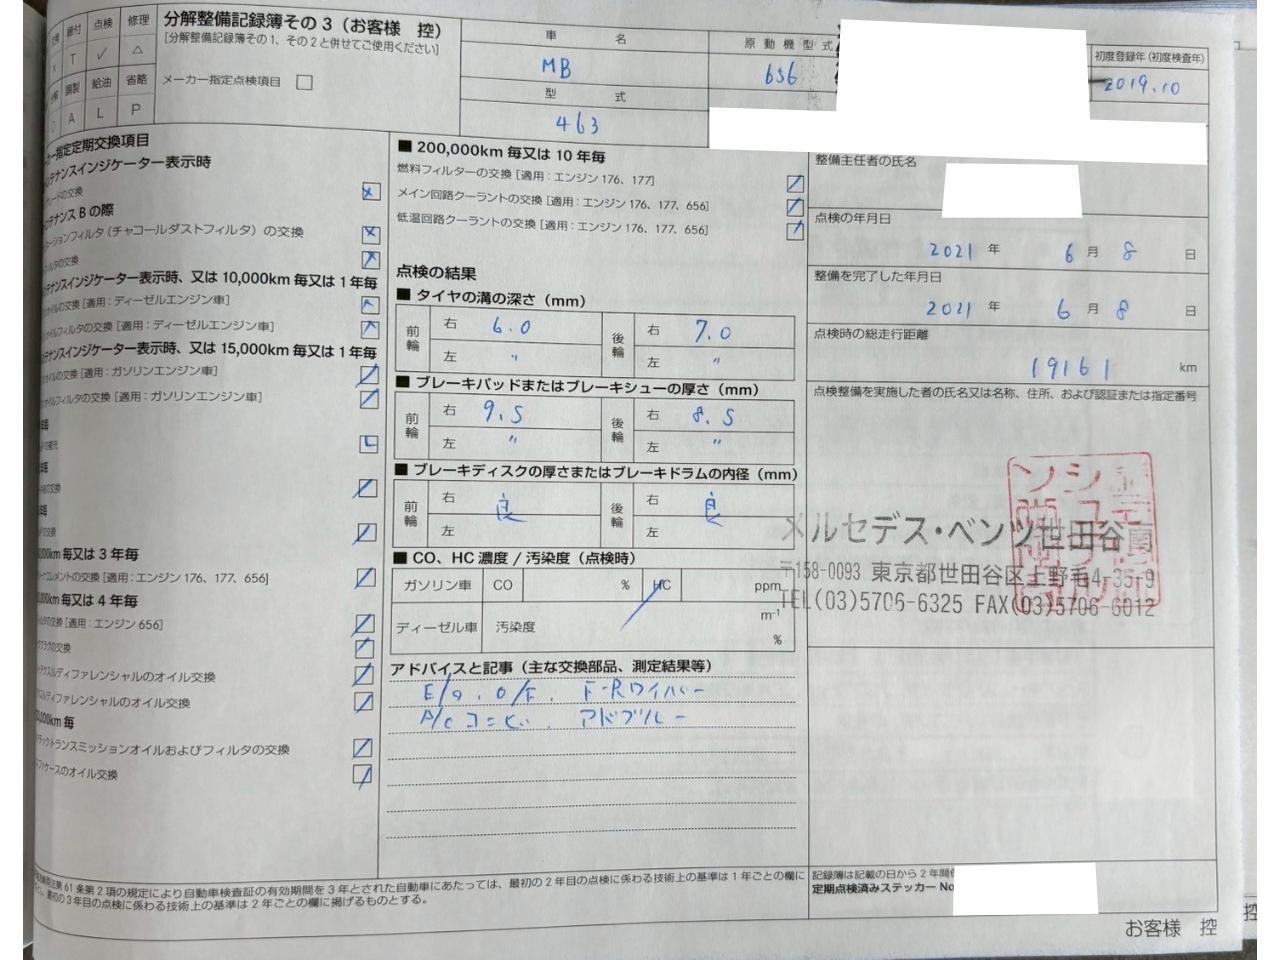 締付 点検 修理
T ✓ △
調製 給油 省略
A L P
分解整備記録簿その3(お客様 控)
[分解整備記録簿その1、その2と併せてご使用ください]
メーカー指定点検項目 □
車 名
MB
原動機型式
656
型 式
463
初度登録年(初度検査年)
2019.10
指定定期交換項目
テナンスインジケーター表示時
の交換
テナンスBの際
ーションフィルタ(チャコールダストフィルタ)の交換
の交換
テナンスインジケーター表示時、又は10,000km毎又は1年毎
イルの交換[適用:ディーゼルエンジン車]
イルフィルタの交換[適用:ディーゼルエンジン車]
テナンスインジケーター表示時、又は15,000km毎又は1年毎
イルの交換[適用:ガソリンエンジン車]
イルフィルタの交換[適用:ガソリンエンジン車]
L
km毎又は3年毎
エレメントの交換[適用:エンジン176、177、656]
km毎又は4年毎
の交換[適用:エンジン656]
プラグの交換
クスルディファレンシャルのオイル交換
クスルディファレンシャルのオイル交換
km毎
チックトランスミッションオイルおよびフィルタの交換
ファケースのオイル交換
■ 200,000km毎又は10年毎
燃料フィルターの交換[適用:エンジン176、177]
メイン回路クーラントの交換[適用:エンジン176、177、656]
低温回路クーラントの交換[適用:エンジン176、177、656]
点検の結果
■ タイヤの溝の深さ(mm)
前輪 右 6.0 後輪 右 7.0
左 〃 左 〃
■ ブレーキパッドまたはブレーキシューの厚さ(mm)
前輪 右 9.5 後輪 右 8.5
左 〃 左 〃
■ ブレーキディスクの厚さまたはブレーキドラムの内径(mm)
前輪 右 良 後輪 右 良
左 左
■ CO、HC濃度/汚染度(点検時)
ガソリン車 CO % HC ppm
ディーゼル車 汚染度 m⁻¹
%
アドバイスと記事(主な交換部品、測定結果等)
E/O、O/F、F・Rワイパー
A/C アドブルー
整備主任者の氏名
点検の年月日
2021 年 6 月 8 日
整備を完了した年月日
2021 年 6 月 8 日
点検時の総走行距離
19161 km
点検整備を実施した者の氏名又は名称、住所、および認証または指定番号
メルセデス・ベンツ世田谷南
〒158-0093 東京都世田谷区上野毛4-35-9
TEL(03)5706-6325 FAX(03)5706-6012
第61条第2項の規定により自動車検査証の有効期間を3年とされた自動車にあたっては、最初の2年目の点検に係わる技術上の基準は1年ごとの欄に
最初の3年目の点検に係わる技術上の基準は2年ごとの欄に掲げるものとする。
記録簿は記載の日から2年間
定期点検済みステッカー No
お客様 控
控